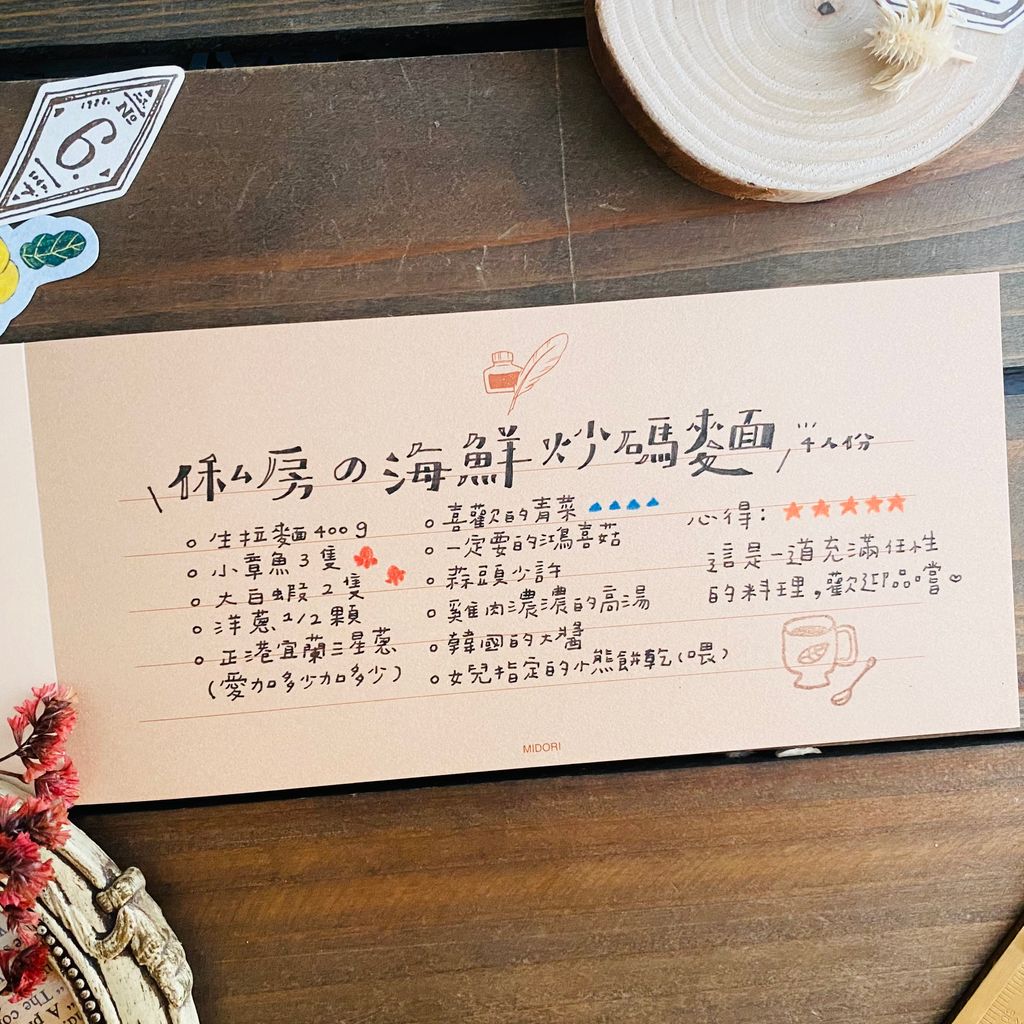 1988.
No
6.
私房の海鮮炒碼麵 4人份
生拉麵400g
小章魚3隻
大白蝦2隻
洋蔥1/2顆
正港宜蘭三星蔥
(愛加多少加多少)
喜歡的青菜
一定要的鴻喜菇
蒜頭少許
雞肉濃濃的高湯
韓國的大醬
女兒指定的小熊餅乾(喂)
心得:★★★★★
這是一道充滿任性
的料理,歡迎品嚐♡
MIDORI
"A p
"The co